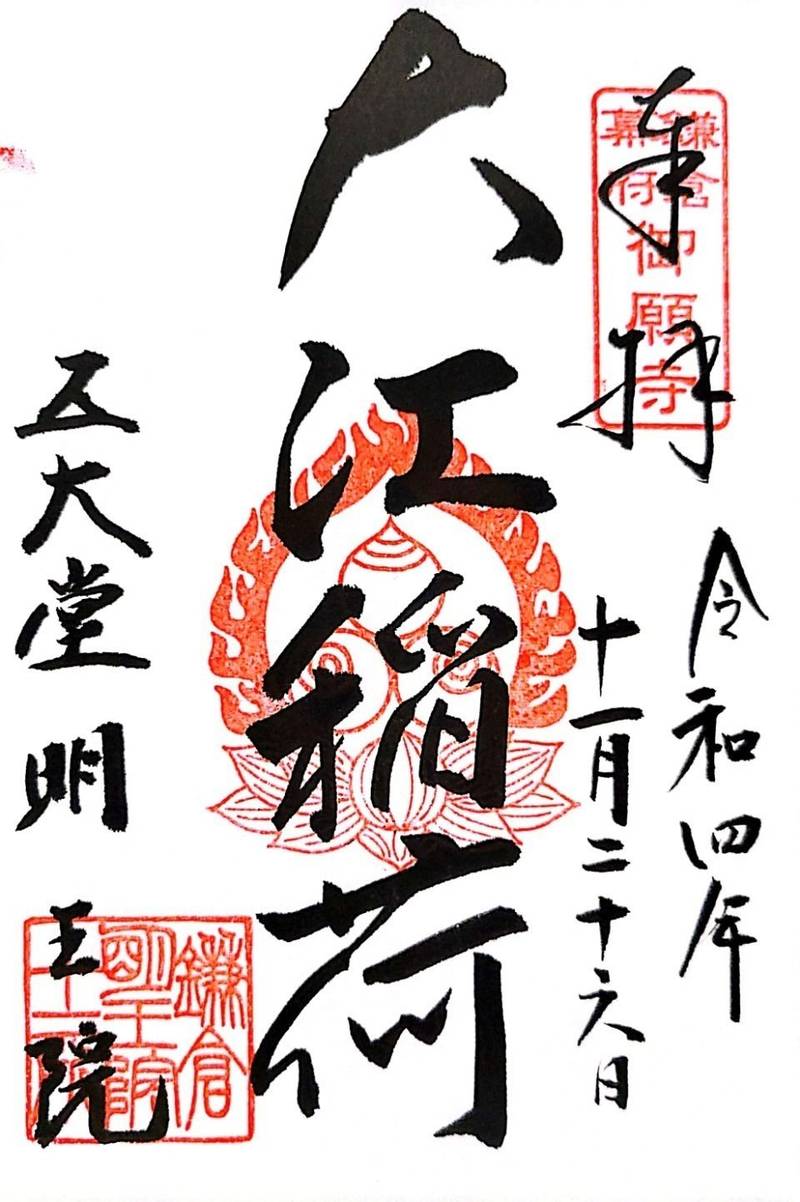 奉拝
鎌倉
幕府
御願寺
令和四年
十一月二十六日
大江稲荷
五大堂 明王院
鎌倉
明王院